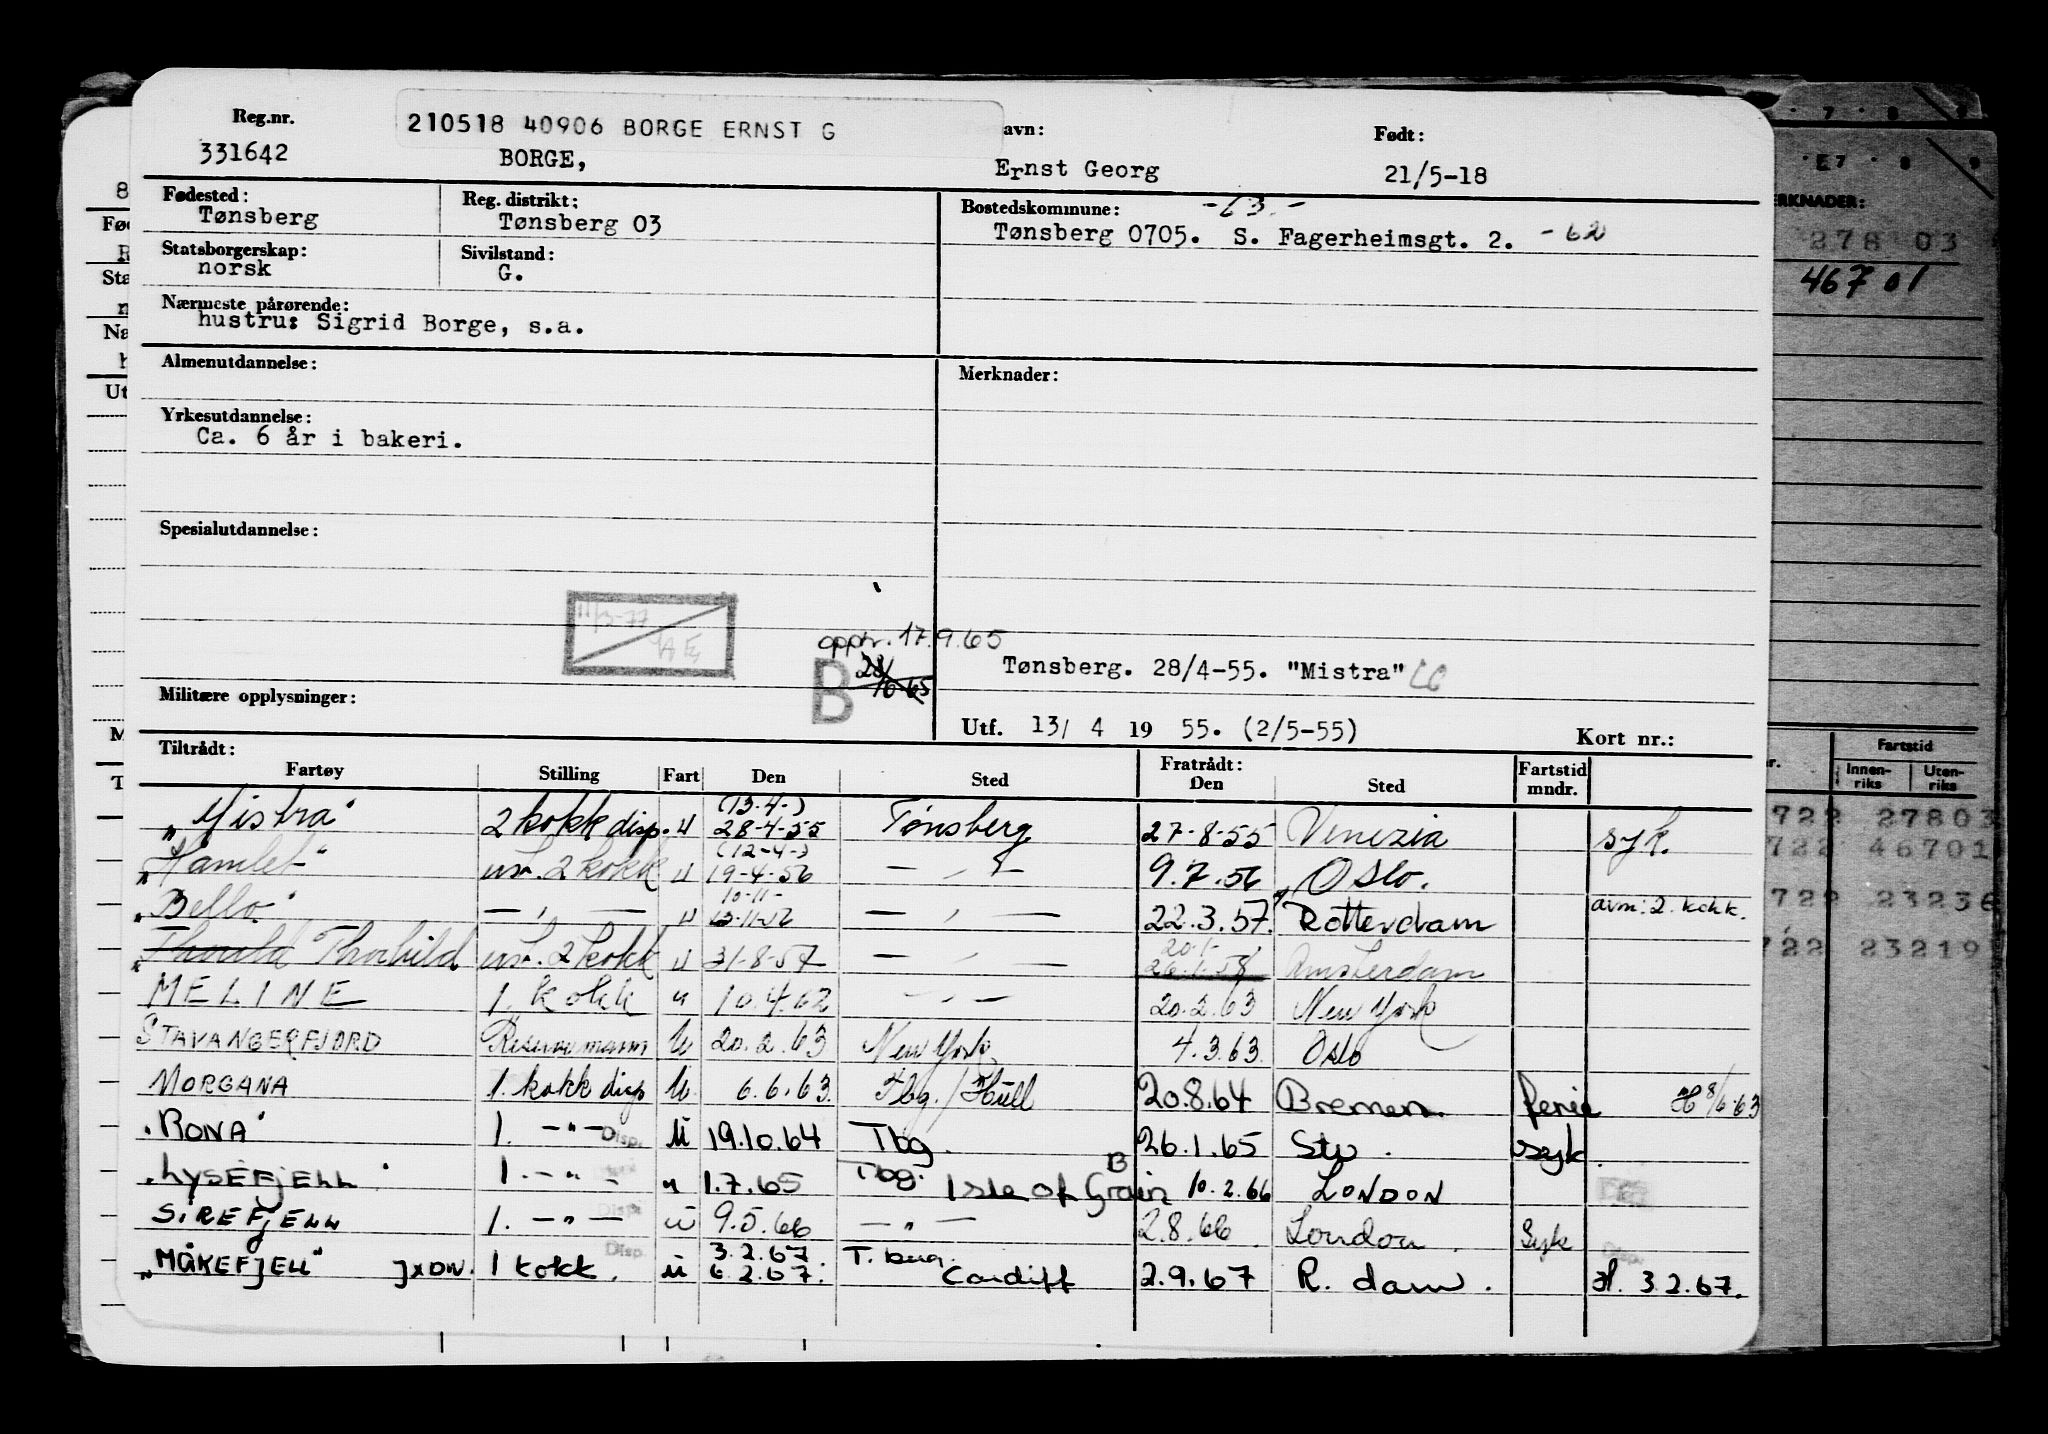 Reg.nr. 210518 40906 BORGE ERNST G avn: Født:
331642 BORGE, Ernst Georg 21/5-18
Fødested: Reg. distrikt: Bostedskommune: -63.-
Tønsberg Tønsberg 03 Tønsberg 0705. S. Fagerheimsgt. 2. -62
Statsborgerskap: Sivilstand:
norsk G.
Nærmeste pårørende:
hustru: Sigrid Borge, s.a.
Almenutdannelse: Merknader:
Yrkesutdannelse:
Ca. 6 år i bakeri.
Spesialutdannelse:
11/3-77
opptr. 17.9.65
B 28/10-65
Tønsberg. 28/4-55. "Mistra"
Militære opplysninger:
Utf. 13/ 4 19 55. (2/5-55) Kort nr.:
Tiltrådt: Fratrådt:
Fartøy Stilling Fart Den Sted Den Sted Fartstid mndr.
(13-4-)
"Mistra" 2 kokk disp. U 28-4-55 Tønsberg 27-8-55 Venezia syk.
(12-4-)
"Hamlet" 2 kokk U 19-4-56 — " — 9.7.56 Oslo.
10-11-
"Bello" — " — U 13-11-56 — " — 22.3.57. Rotterdam avm: 2. kokk.
20-1-
Thorhild 2 kokk U 31-8-57 — " — 26.1.58 Amsterdam
MELINE 1. kokk u 10.4.62 — " — 20.2.63 New York
STAVANGERFJORD Reservemann U 20.2.63 New York 4.3.63. Oslo
MORGANA 1. kokk disp U. 6.6.63. Tbg./Hull 20.8.64 Bremen. ferie 8/6-63
"RONA" 1. —"— Disp. U 19.10.64 Tbg. 26.1.65 Stv. syk.
"LYSEFJELL" 1. —"— u 1.7.65 Tbg. Isle of Grain B 10.2.66 LONDON
SIREFJELL 1. —"— Disp. U 9.5.66 —"— 2.8.66. London. Syk
3.2.67. T.berg.
"MÅKEFJELL" 1 kokk. Disp. U 6.2.67. Cardiff 2.9.67 R.dam. 3.2.67.
E7 8 9
ERKNADER:
278 03
467 01
Fartstid
Innen-riks Uten-riks
722 27803
722 46701
722 23236
722 23219